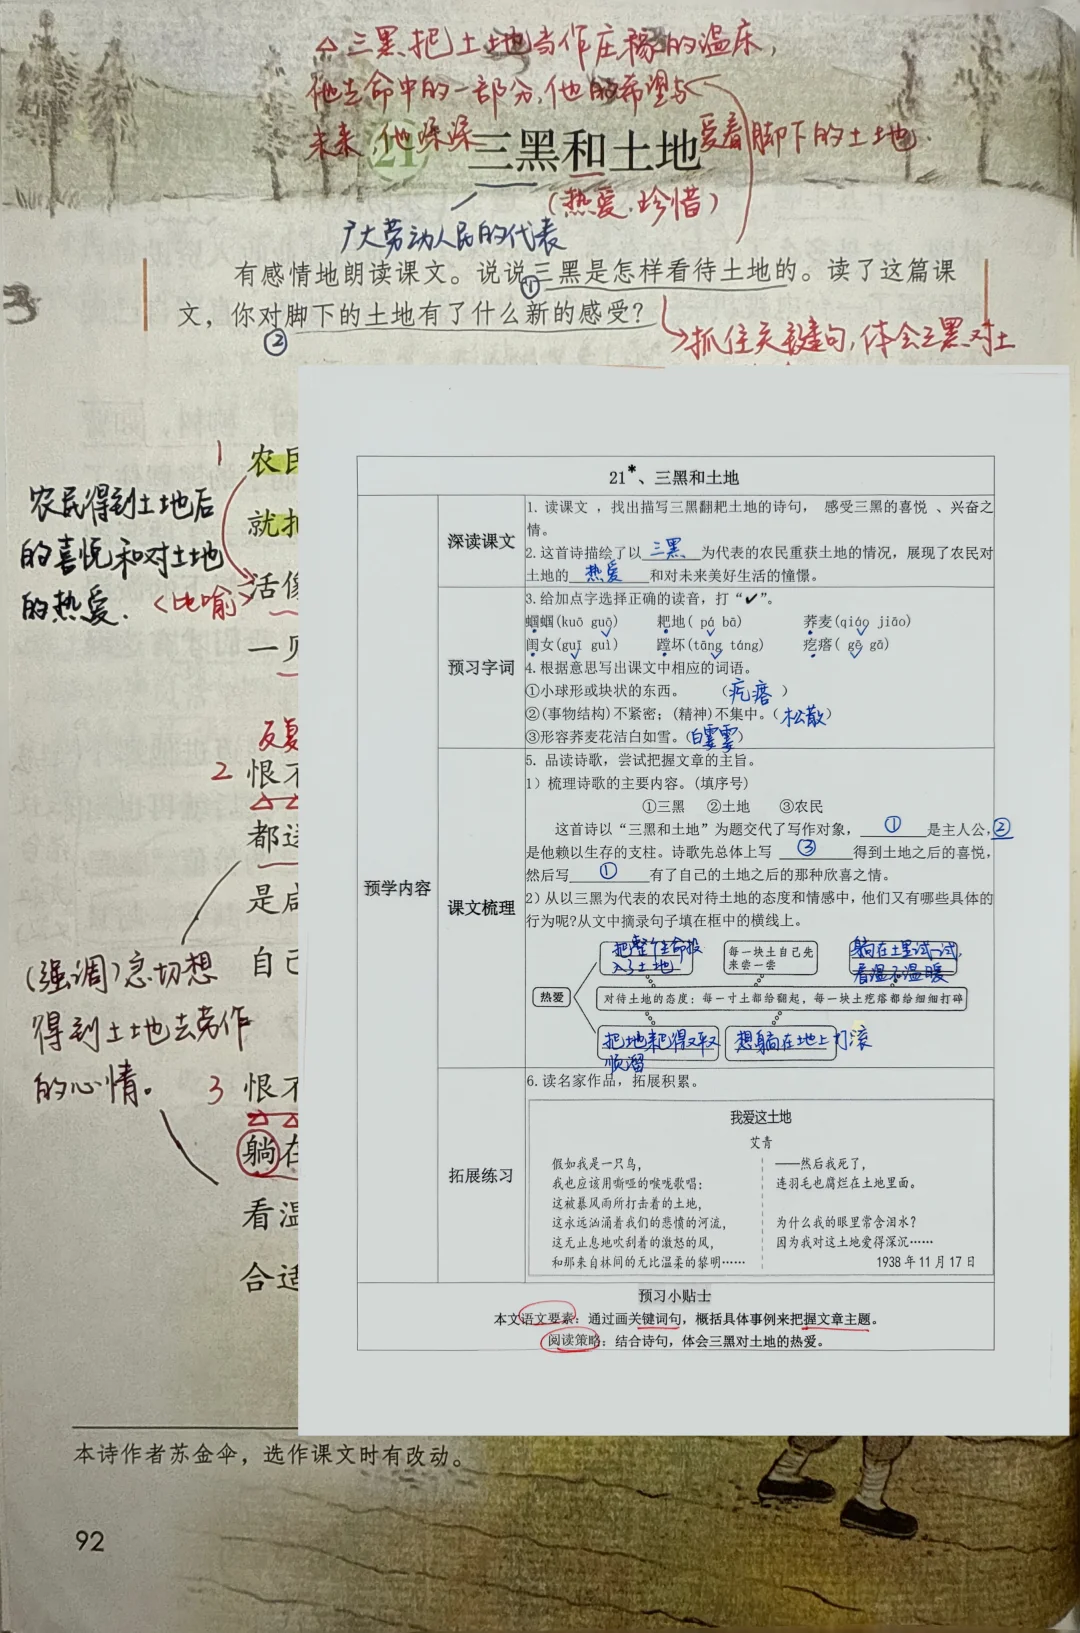 △三黑把土地当作庄稼的温床，
他生命中的一部分，他的希望与
未来，他深深爱着脚下的土地.
21 三黑和土地
(热爱、珍惜)
广大劳动人民的代表
有感情地朗读课文。说说三黑是怎样看待土地的。读了这篇课
①
文，你对脚下的土地有了什么新的感受？
②
抓住关键句，体会三黑对土
1 农民
就把
农民得到土地后
的喜悦和对土地
的热爱. <比喻> 活像
一见
反复
2 恨不
都
是
(强调)急切想 自己
得到土地去劳作
的心情。
3 恨不
躺在
看温
合适
21*、三黑和土地
预学内容
深读课文
1. 读课文 ，找出描写三黑翻耙土地的诗句， 感受三黑的喜悦 、兴奋之
情。
2. 这首诗描绘了以 三黑 为代表的农民重获土地的情况，展现了农民对
土地的 热爱 和对未来美好生活的憧憬。
预习字词
3. 给加点字选择正确的读音，打“✔”。
蝈蝈(kuō guō) 耙地( pá bā) 荞麦(qiáo jiāo)
闺女(guī guì) 蹚坏(tāng táng) 疙瘩( gē gā)
4. 根据意思写出课文中相应的词语。
①小球形或块状的东西。 （疙瘩 ）
②(事物结构)不紧密；(精神)不集中。（松散）
③形容荞麦花洁白如雪。(白雪雪)
课文梳理
5. 品读诗歌，尝试把握文章的主旨。
1）梳理诗歌的主要内容。(填序号)
①三黑 ②土地 ③农民
这首诗以“三黑和土地”为题交代了写作对象， ① 是主人公，②
是他赖以生存的支柱。诗歌先总体上写 ③ 得到土地之后的喜悦，
然后写 ① 有了自己的土地之后的那种欣喜之情。
2）从以三黑为代表的农民对待土地的态度和情感中，他们又有哪些具体的
行为呢?从文中摘录句子填在框中的横线上。
把整个生命投
入了土地
每一块土自己先
来尝一尝
躺在土里试一试，
看温不温暖
热爱
对待土地的态度：每一寸土都给翻起，每一块土疙瘩都给细细打碎
把地耙得又平又
顺溜
想躺在地上打滚
拓展练习
6. 读名家作品，拓展积累。
我爱这土地
艾青
假如我是一只鸟，
我也应该用嘶哑的喉咙歌唱：
这被暴风雨所打击着的土地，
这永远汹涌着我们的悲愤的河流，
这无止息地吹刮着的激怒的风，
和那来自林间的无比温柔的黎明……
——然后我死了，
连羽毛也腐烂在土地里面。
为什么我的眼里常含泪水？
因为我对这土地爱得深沉……
1938 年 11 月 17 日
预习小贴士
本文语文要素：通过画关键词句，概括具体事例来把握文章主题。
阅读策略：结合诗句，体会三黑对土地的热爱。
本诗作者苏金伞，选作课文时有改动。
92